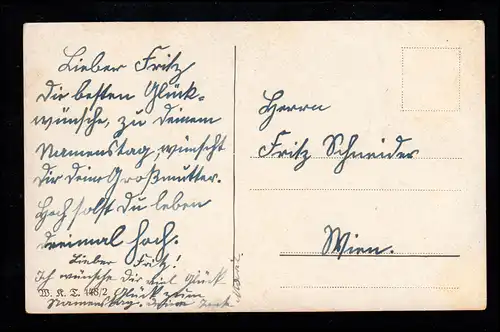 Lieber Fritz
Die besten Glück-
wünsche, zu Deinem
Namenstag, wünscht
Dir Deine Großmutter.
Hoch sollst Du leben
dreimal hoch.
Lieber Fritz!
Ich wünsche Dir viel Glück
W. K. T. 148/2 Glück zum
Namenstag. Deine Tante
Herrn
Fritz Schneider
Wien.